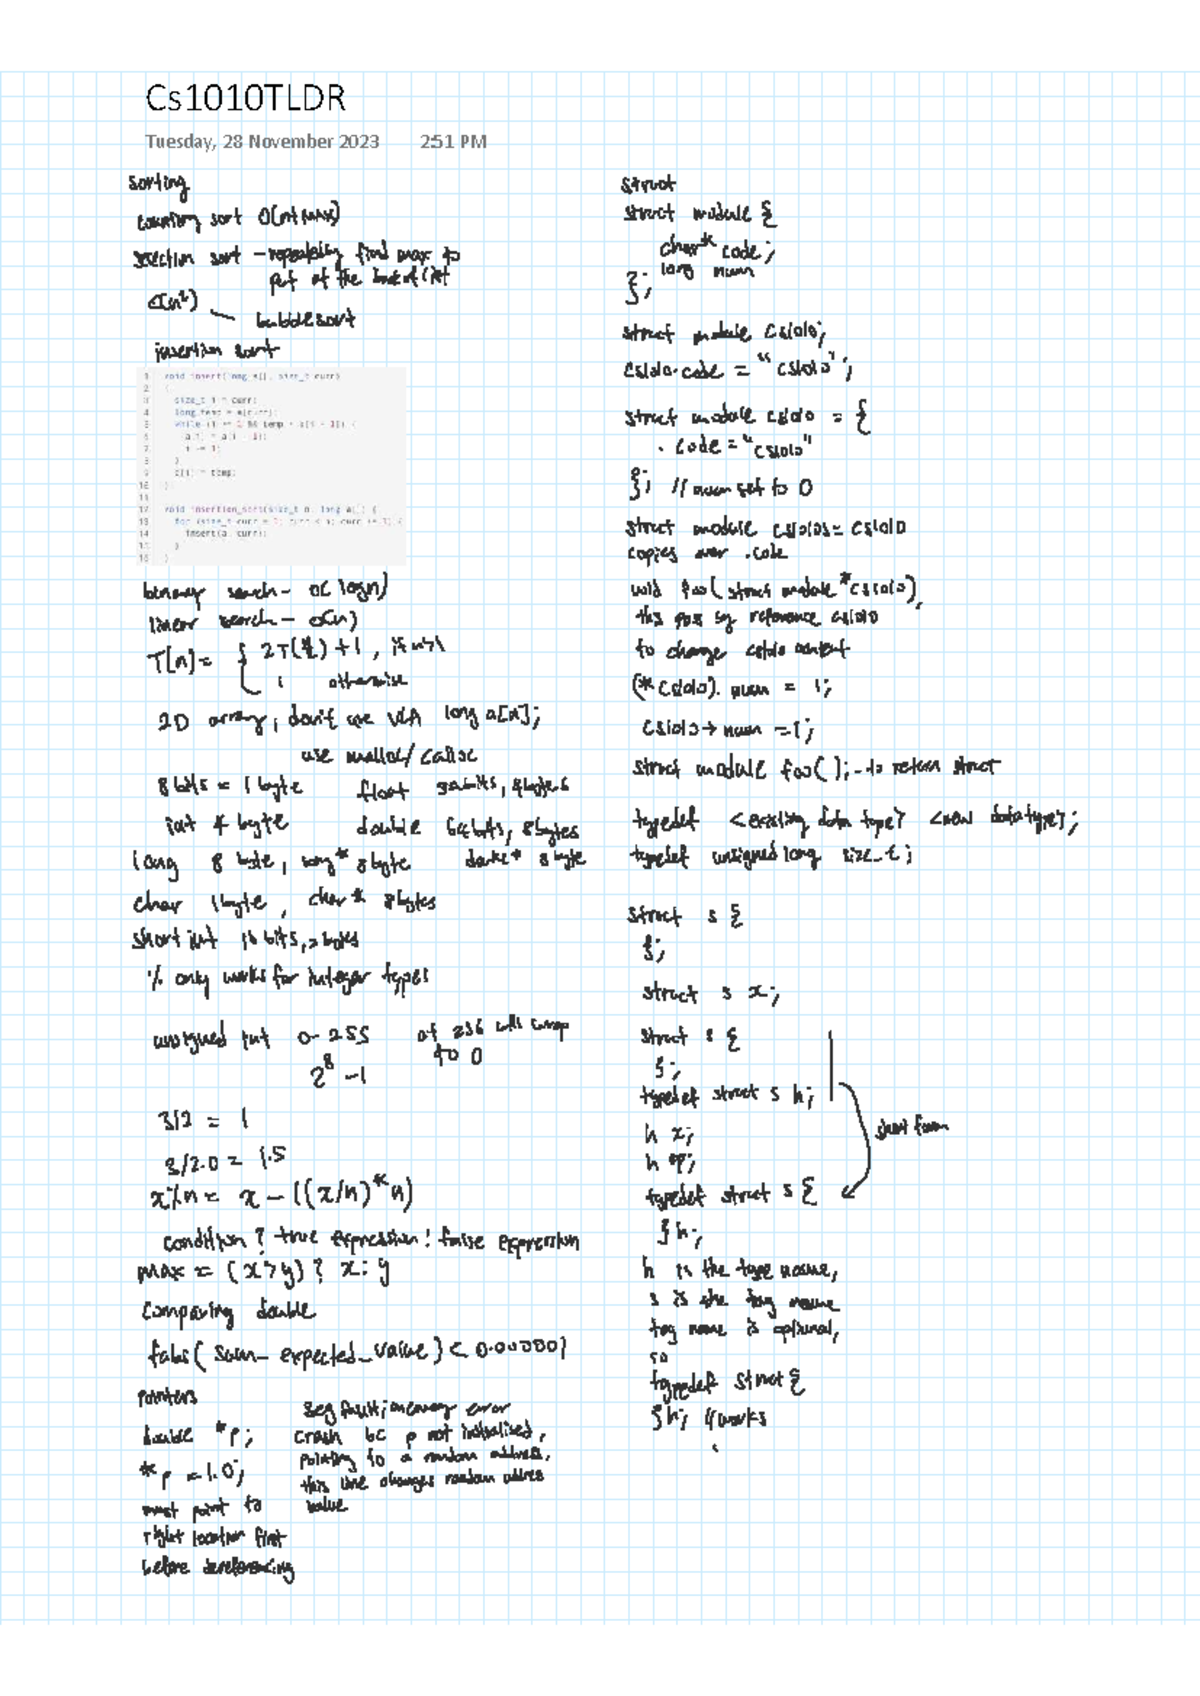 Cs1010TLDR
Tuesday, 28 November 2023 2:51 PM
sorting
counting sort O(n+MAX)
selection sort - repeatedly find max to
put at the back of list
O(n²)
bubble sort
insertion sort
1 void insert(long a[], size_t curr)
2 {
3 size_t i = curr;
4 long temp = a[curr];
5 while (i >= 1 && temp < a[i - 1]) {
6 a[i] = a[i - 1];
7 i -= 1;
8 }
9 a[i] = temp;
10 }
11
12 void insertion_sort(size_t n, long a[]) {
13 for (size_t curr = 1; curr < n; curr += 1) {
14 insert(a, curr);
15 }
16 }
binary search - O(logn)
linear search - O(n)
T[n] = { 2T(n/2) + 1 , if n>1
1 otherwise
2D array, don't use VLA long a[n];
use malloc/calloc
8 bits = 1 byte float 32bits, 4bytes
int 4 byte double 64bits, 8bytes
long 8 byte, long* 8byte double* 8 byte
char 1byte , char* 8bytes
short int 16 bits, 2 bytes
% only works for integer types
unsigned int 0-255 at 256 will wrap
to 0
2⁸ -1
3/2 = 1
3/2.0 = 1.5
x%n = x - ((x/n)*n)
condition ? true expression : false expression
max = (x>y) ? x : y
comparing double
fabs( sum - expected_value ) < 0.000001
pointers
double *p;
*p = 1.0;
must point to
right location first
before dereferencing
seg fault; memory error
crash bc p not initialised,
pointing to a random address,
this line changes random addres
value
struct
struct module {
char* code;
long num
};
struct module cs1010;
cs1010.code = "cs1010";
struct module cs1010 = {
.code = "cs1010"
}; // num set to 0
struct module cs1010s = cs1010
copies over .code
void foo( struct module *cs1010),
this pass by reference cs1010
to change cs1010 content
(*cs1010). num = 1;
cs1010→num = 1;
struct module foo( ); - to return struct
typedef <existing data type> <new datatype>;
typedef unsigned long size_t;
struct s {
};
struct s x;
struct s {
};
typedef struct s h;
h x;
h *p;
short form
typedef struct s {
} h;
h is the type name,
s is the tag name
tag name is optional,
so
typedef struct {
} h; // works